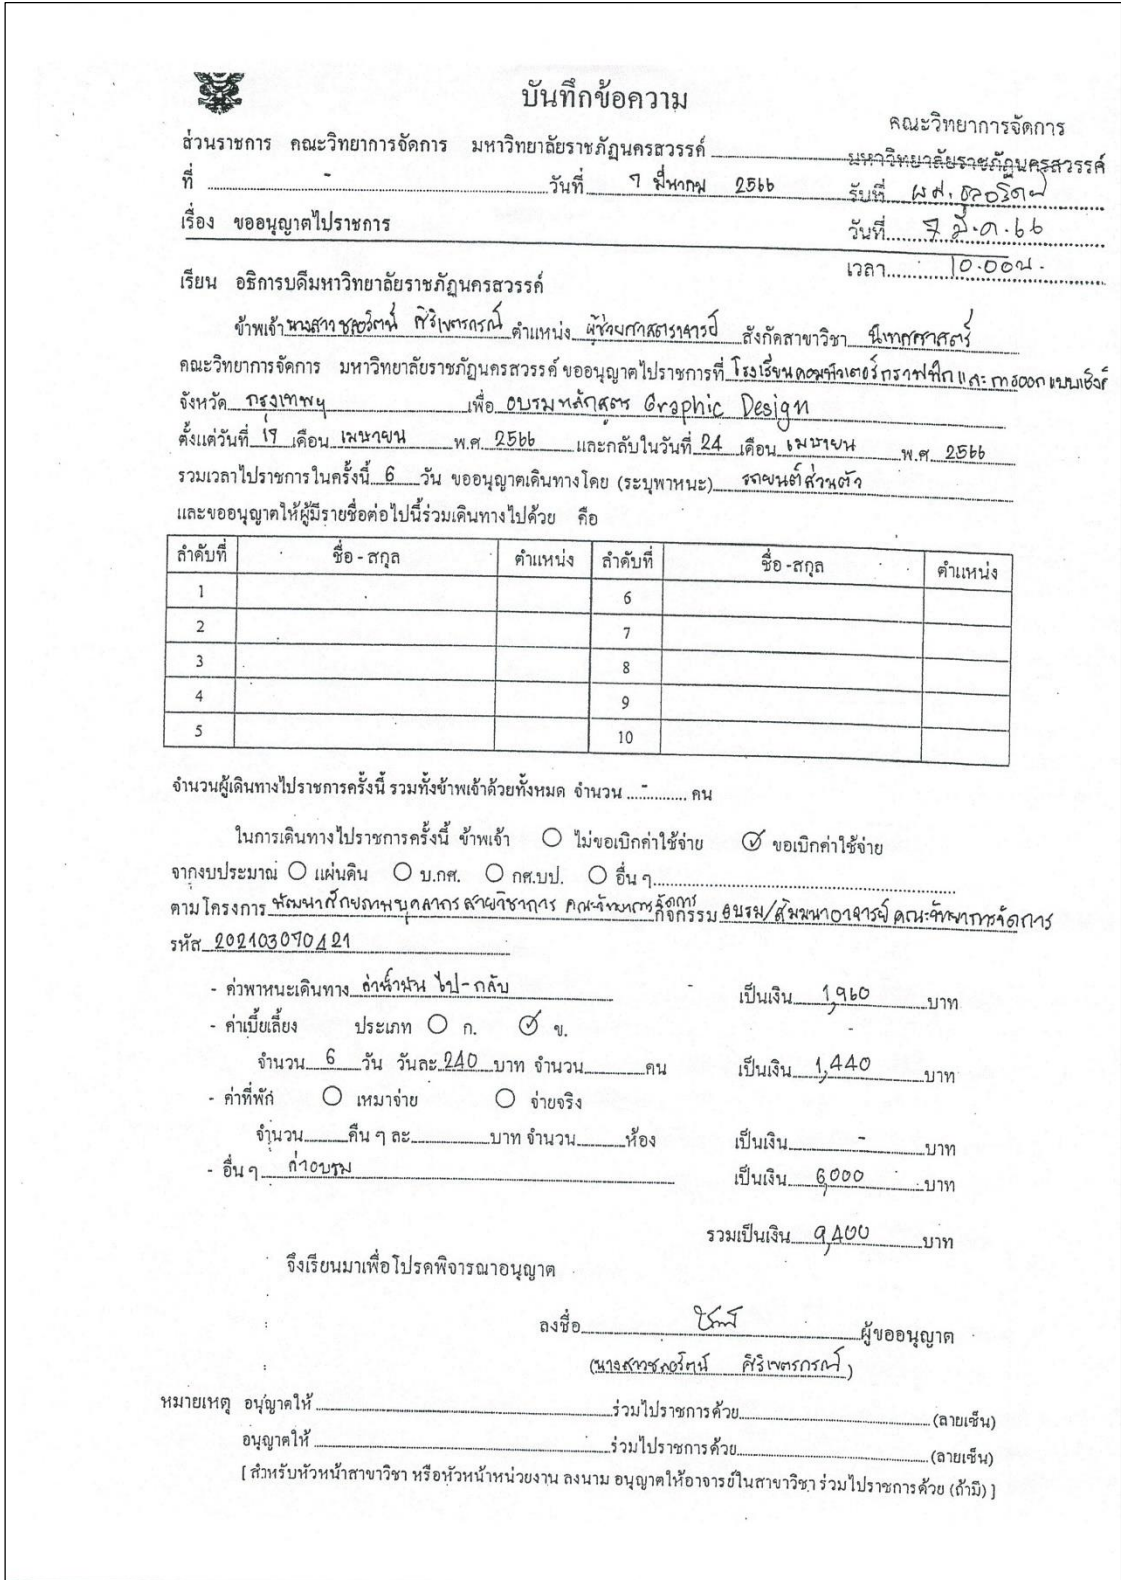 บันทึกข้อความ
คณะวิทยาการจัดการ
มหาวิทยาลัยราชภัฏนครสวรรค์
รับที่ ผศ.
วันที่ 7 มี.ค. 66
เวลา 10.00น.
ส่วนราชการ คณะวิทยาการจัดการ มหาวิทยาลัยราชภัฏนครสวรรค์
ที่ - วันที่ 7 มีนาคม 2566
เรื่อง ขออนุญาตไปราชการ
เรียน อธิการบดีมหาวิทยาลัยราชภัฏนครสวรรค์
ข้าพเจ้า นางสาวชลอรัตน์ ศิริเขตรกรณ์ ตำแหน่ง ผู้ช่วยศาสตราจารย์ สังกัดสาขาวิชา นิเทศศาสตร์
คณะวิทยาการจัดการ มหาวิทยาลัยราชภัฏนครสวรรค์ ขออนุญาตไปราชการที่ โรงเรียนคอมพิวเตอร์กราฟฟิกและการออกแบบเชิงดิ
จังหวัด กรุงเทพฯ เพื่อ อบรมหลักสูตร Graphic Design
ตั้งแต่วันที่ 19 เดือน เมษายน พ.ศ. 2566 และกลับในวันที่ 24 เดือน เมษายน พ.ศ. 2566
รวมเวลาไปราชการในครั้งนี้ 6 วัน ขออนุญาตเดินทางโดย (ระบุพาหนะ) รถยนต์ส่วนตัว
และขออนุญาตให้ผู้มีรายชื่อต่อไปนี้ร่วมเดินทางไปด้วย คือ
ลำดับที่ ชื่อ - สกุล ตำแหน่ง ลำดับที่ ชื่อ -สกุล ตำแหน่ง
1 6
2 7
3 8
4 9
5 10
จำนวนผู้เดินทางไปราชการครั้งนี้ รวมทั้งข้าพเจ้าด้วยทั้งหมด จำนวน - คน
ในการเดินทางไปราชการครั้งนี้ ข้าพเจ้า ไม่ขอเบิกค่าใช้จ่าย ขอเบิกค่าใช้จ่าย
จากงบประมาณ แผ่นดิน บ.กศ. กศ.บป. อื่น ๆ
ตามโครงการ พัฒนาศักยภาพบุคลากร สายวิชาการ คณะวิทยาการจัดการ กิจกรรม อบรม/สัมมนาอาจารย์ คณะวิทยาการจัดการ
รหัส 202103090421
- ค่าพาหนะเดินทาง ค่าน้ำมัน ไป-กลับ เป็นเงิน 1,960 บาท
- ค่าเบี้ยเลี้ยง ประเภท ก. ข.
จำนวน 6 วัน วันละ 240 บาท จำนวน คน เป็นเงิน 1,440 บาท
- ค่าที่พัก เหมาจ่าย จ่ายจริง
จำนวน คืน ๆ ละ บาท จำนวน ห้อง เป็นเงิน - บาท
- อื่น ๆ ค่าอบรม เป็นเงิน 6,000 บาท
รวมเป็นเงิน 9,400 บาท
จึงเรียนมาเพื่อโปรดพิจารณาอนุญาต
ลงชื่อ ผู้ขออนุญาต
(นางสาวชลอรัตน์ ศิริเขตรกรณ์)
หมายเหตุ อนุญาตให้ ร่วมไปราชการด้วย (ลายเซ็น)
อนุญาตให้ ร่วมไปราชการด้วย (ลายเซ็น)
[ สำหรับหัวหน้าสาขาวิชา หรือหัวหน้าหน่วยงาน ลงนาม อนุญาตให้อาจารย์ในสาขาวิชา ร่วมไปราชการด้วย (ถ้ามี) ]